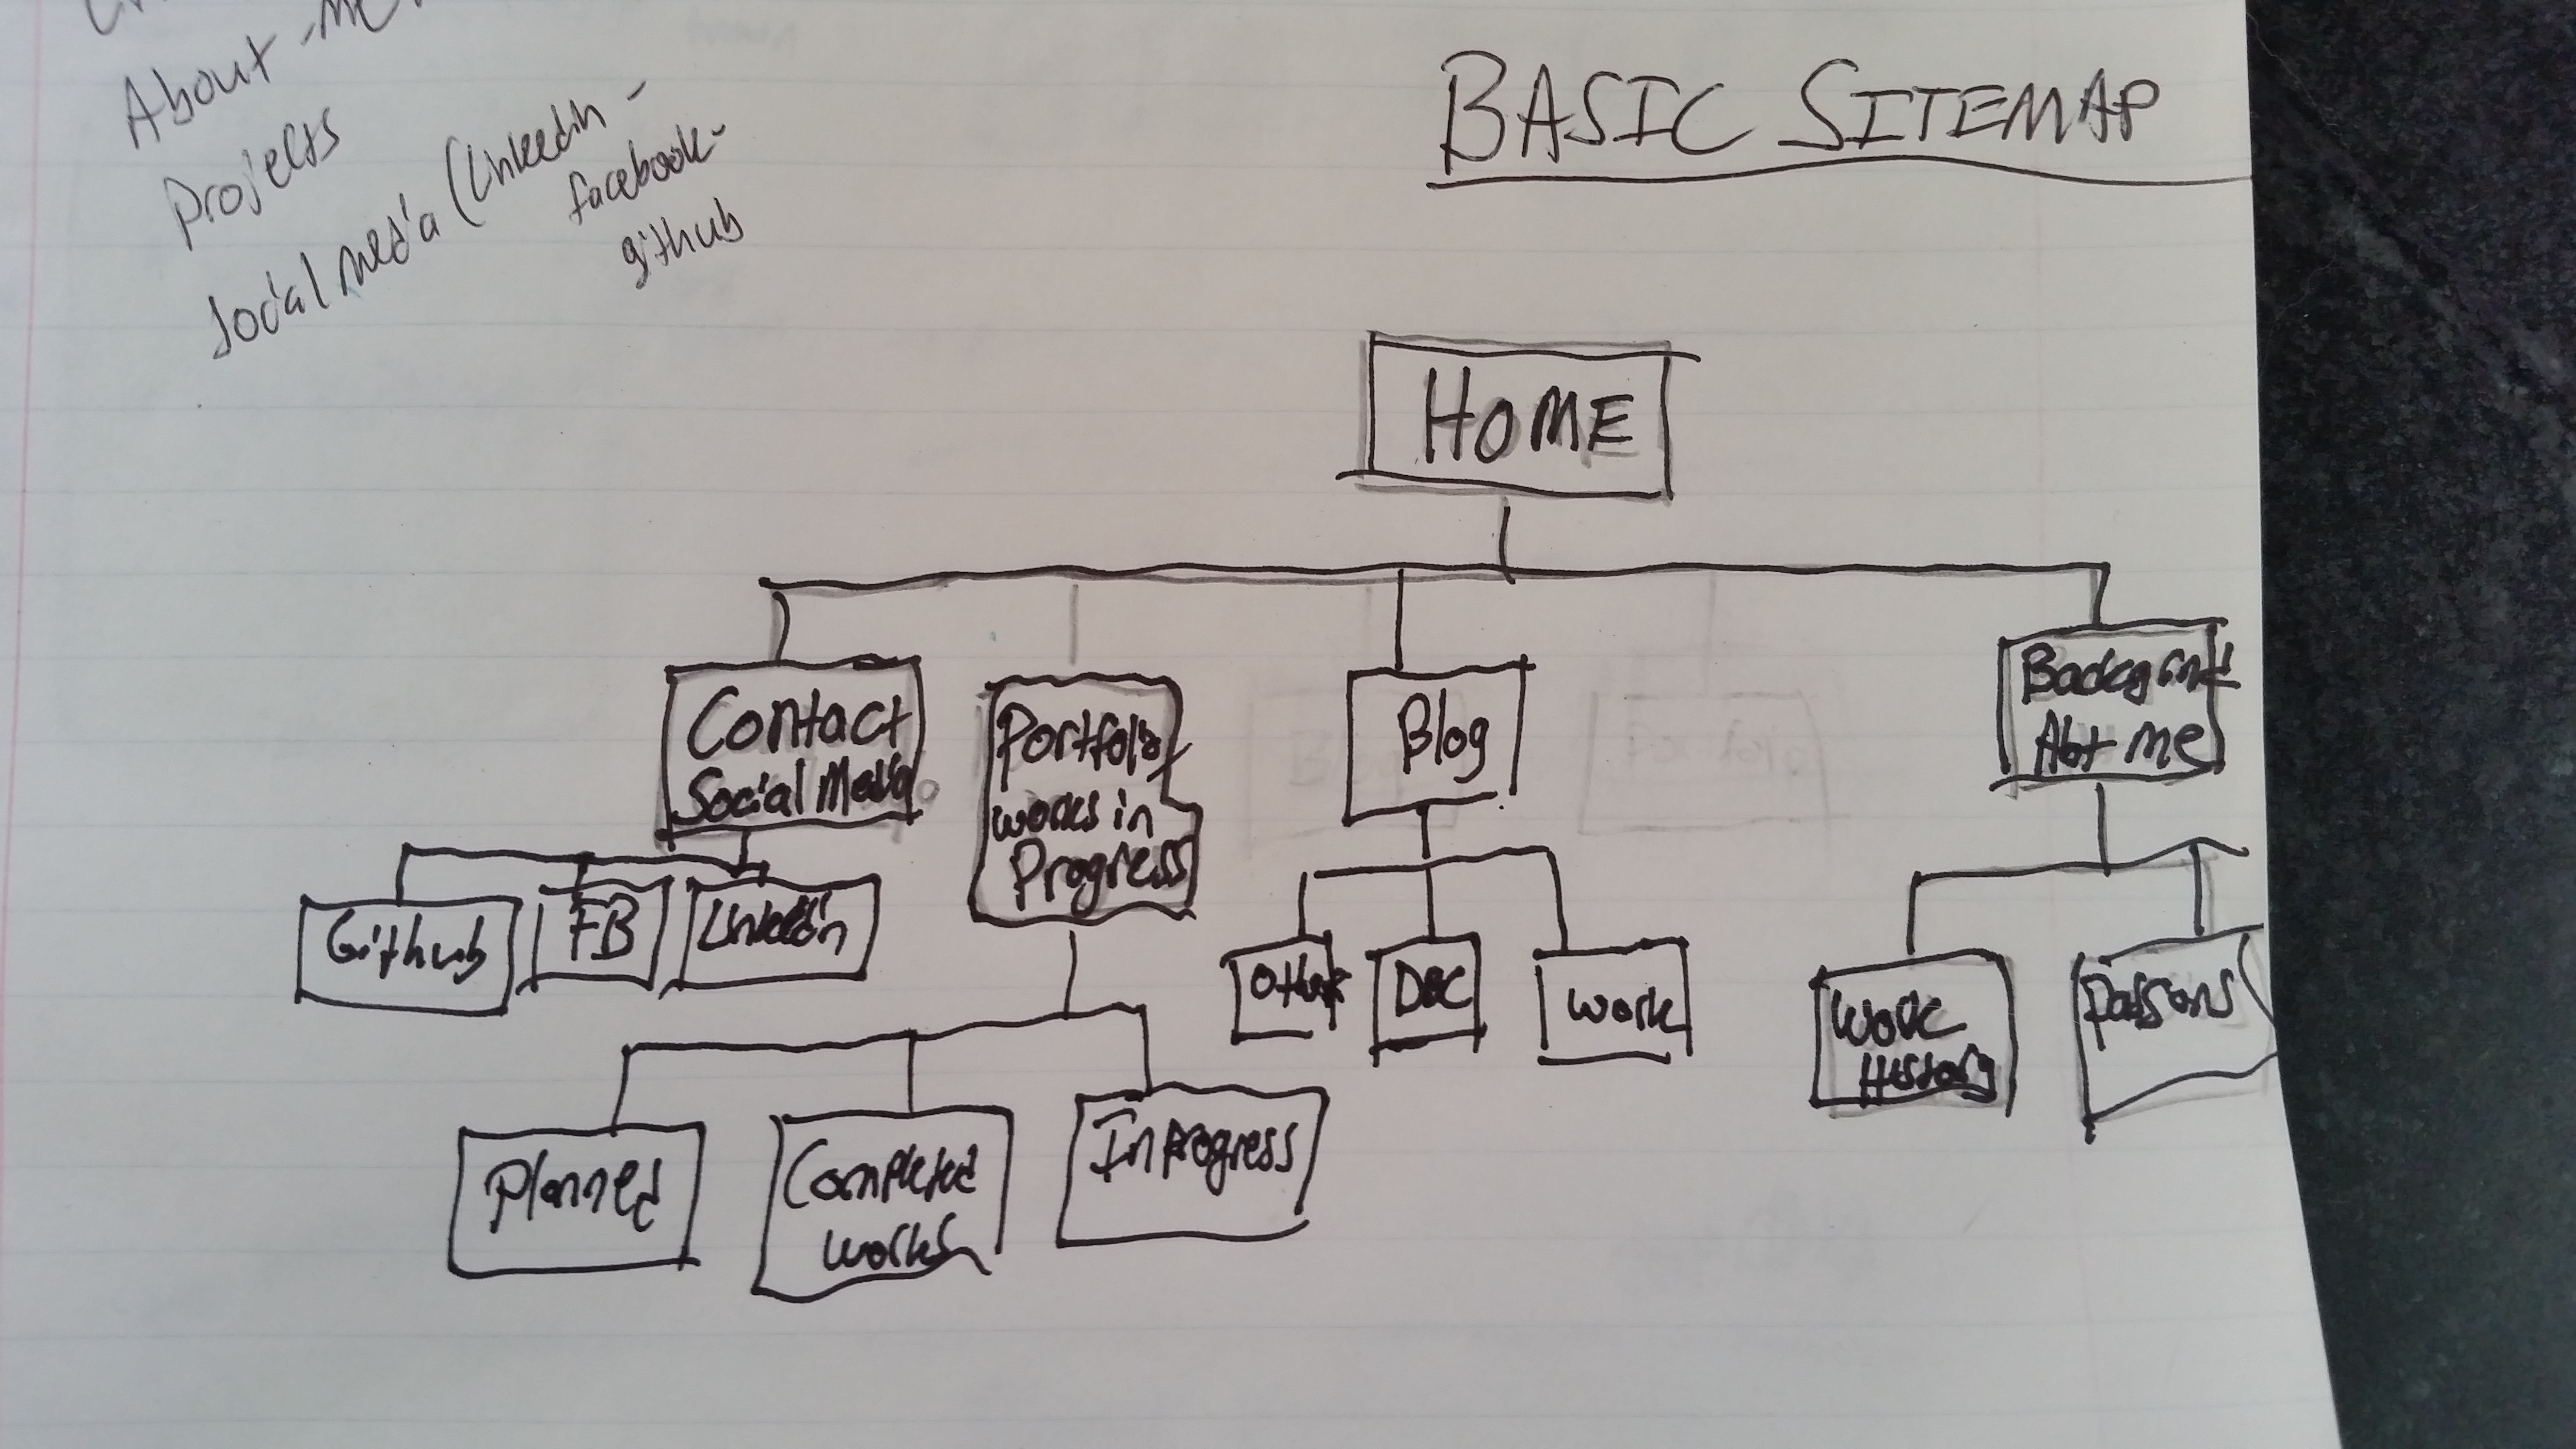 About me
projects
social media (linkedin,
facebook,
github
BASIC SITEMAP
HOME
Contact
Social Media
Portfolio
works in
Progress
Blog
me
Github
FB
Linkedin
Other
DBC
work
Work
History
Planned
Completed
works
In progress